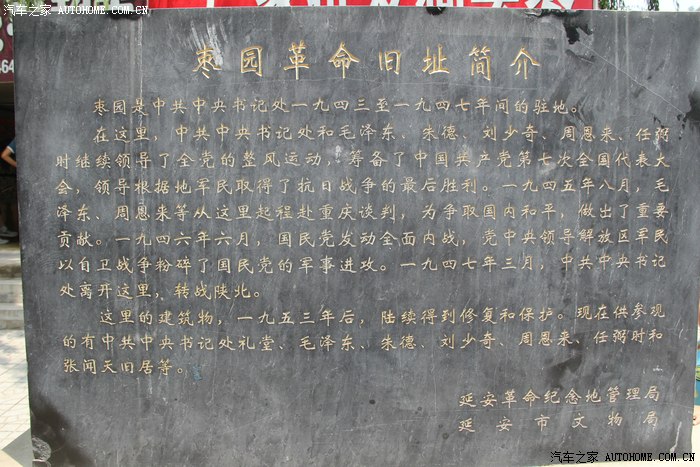 汽车之家 AUTOHOME.COM.CN
枣园革命旧址简介
枣园是中共中央书记处一九四三至一九四七年间的驻地。
在这里，中共中央书记处和毛泽东、朱德、刘少奇、周恩来、任弼
时继续领导了全党的整风运动，筹备了中国共产党第七次全国代表大
会，领导根据地军民取得了抗日战争的最后胜利。一九四五年八月，毛
泽东、周恩来等从这里起程赴重庆谈判，为争取国内和平，做出了重要
贡献。一九四六年六月，国民党发动全面内战，党中央领导解放区军民
以自卫战争粉碎了国民党的军事进攻。一九四七年三月，中共中央书记
处离开这里，转战陕北。
这里的建筑物，一九五三年后，陆续得到修复和保护。现在供参观
的有中共中央书记处礼堂、毛泽东、朱德、刘少奇、周恩来、任弼时和
张闻天旧居等。
延安革命纪念地管理局
延安市文物局
汽车之家 AUTOHOME.COM.CN